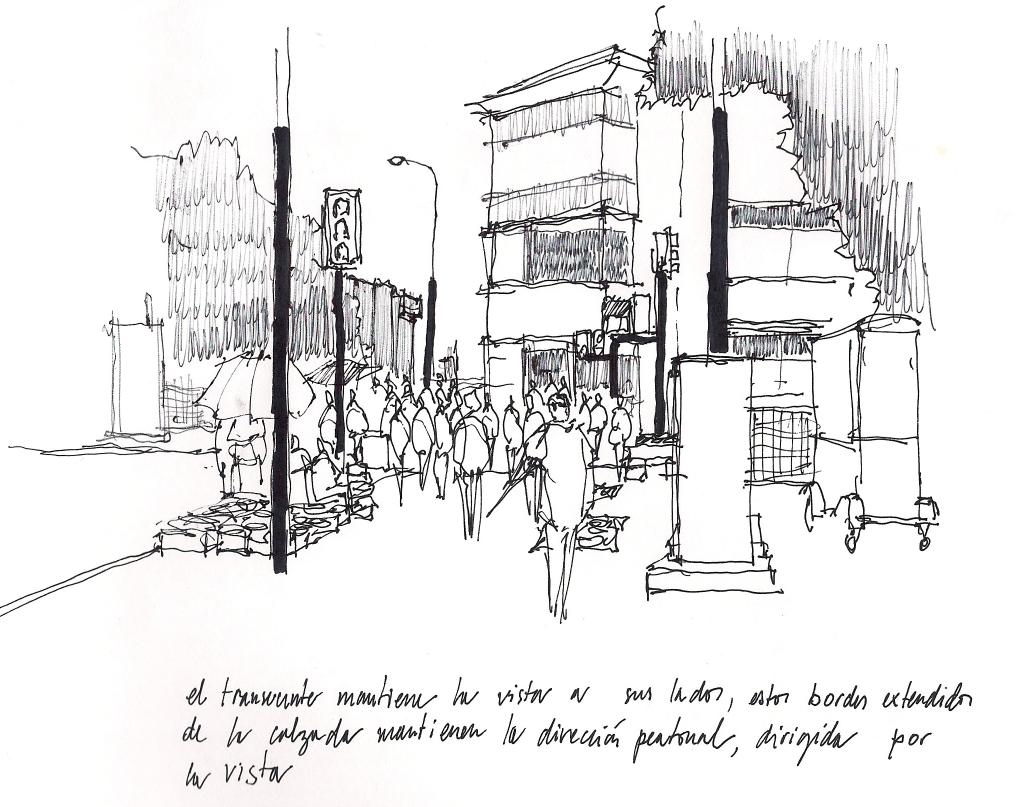 el transeunte mantiene la vista a sus lados, estos bordes extendidos
de la calzada mantienen la dirección peatonal, dirigida por
la vista